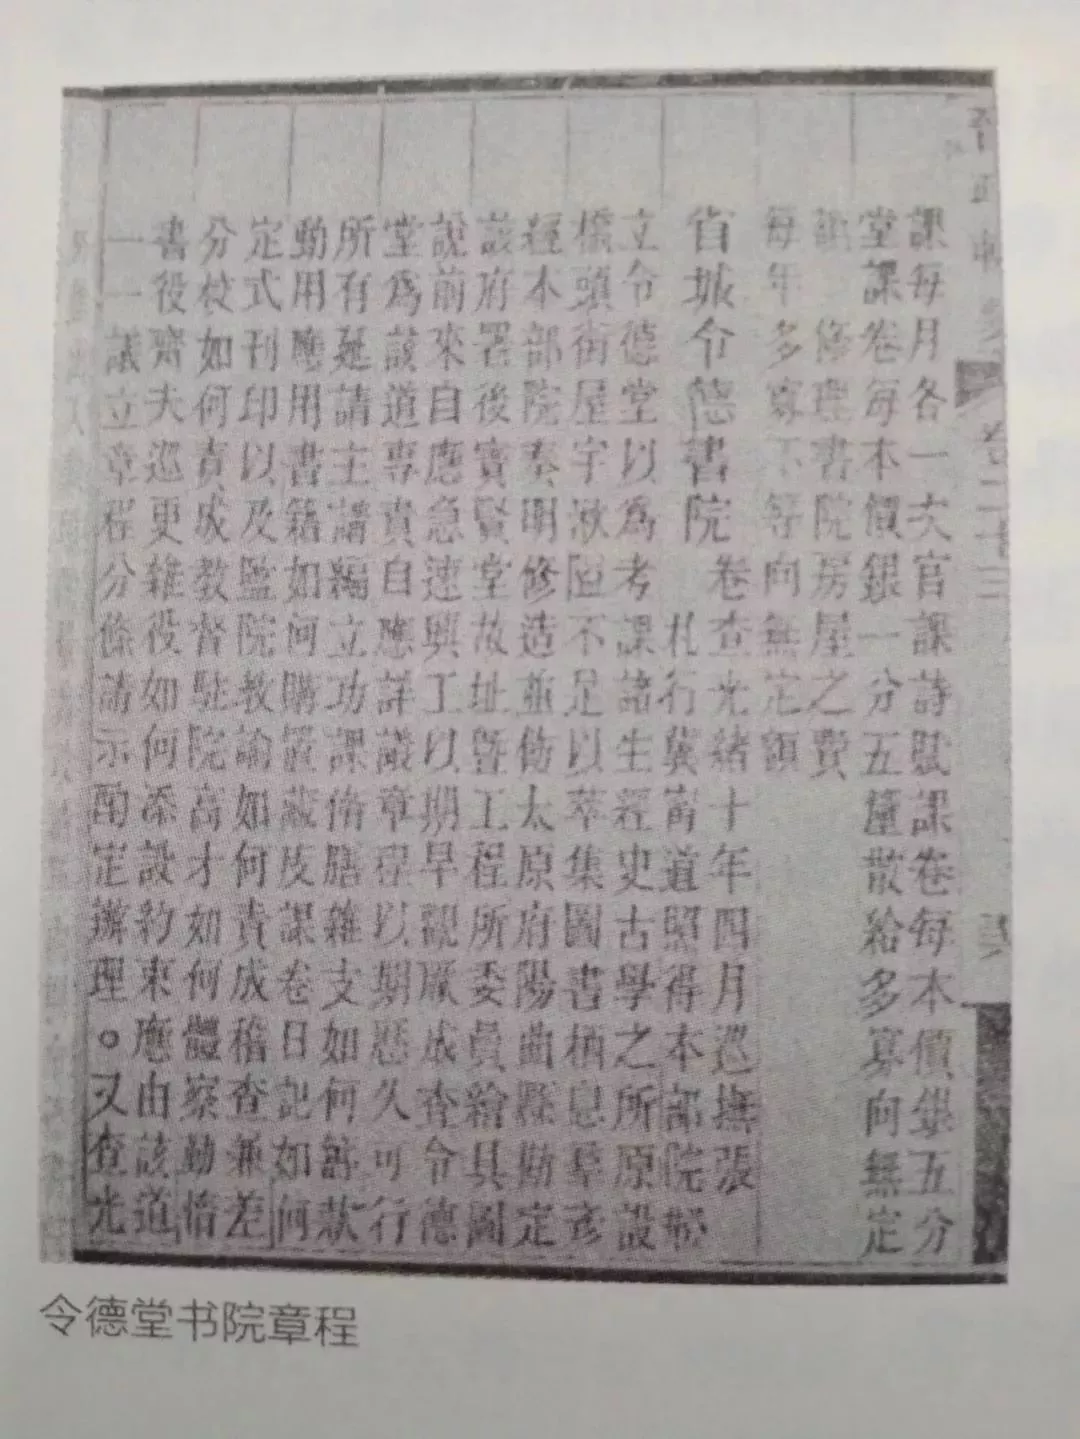 晉政輯要
卷二十三
課每月各一次官課詩賦課卷每本價銀五分
堂課卷每本價銀一分五釐散給多寡向無定
額修理書院房屋之費
每年多寡不等向無定額
省城令德書院
卷查光緒十年四月巡撫張
札行冀甯道照得本部院擬
立令德堂以爲考課諸生經史古學之所原設
橋頭街屋宇湫隘不足以萃集圖書栖息羣彥
經本部院奏明修造並飭太原府陽曲縣勘定
該府署後寶賢堂故址暨工程所委員繪具圖
說前來自應急速興工以期早觀厥成查令德
堂爲該道專責自應詳議章程以期歷久可行
所有延請主講編立功課脩膳雜支如何籌款
動用應用書籍如何購置藏庋課卷日記如何
定式刊印以及監院教諭如何責成稽查兼差
分校如何責成教督駐院高才如何體察勤惰
書役齋夫巡更雜役如何添設約束應由該道
一一議立章程分條請示酌定辦理。又查光
令德堂书院章程